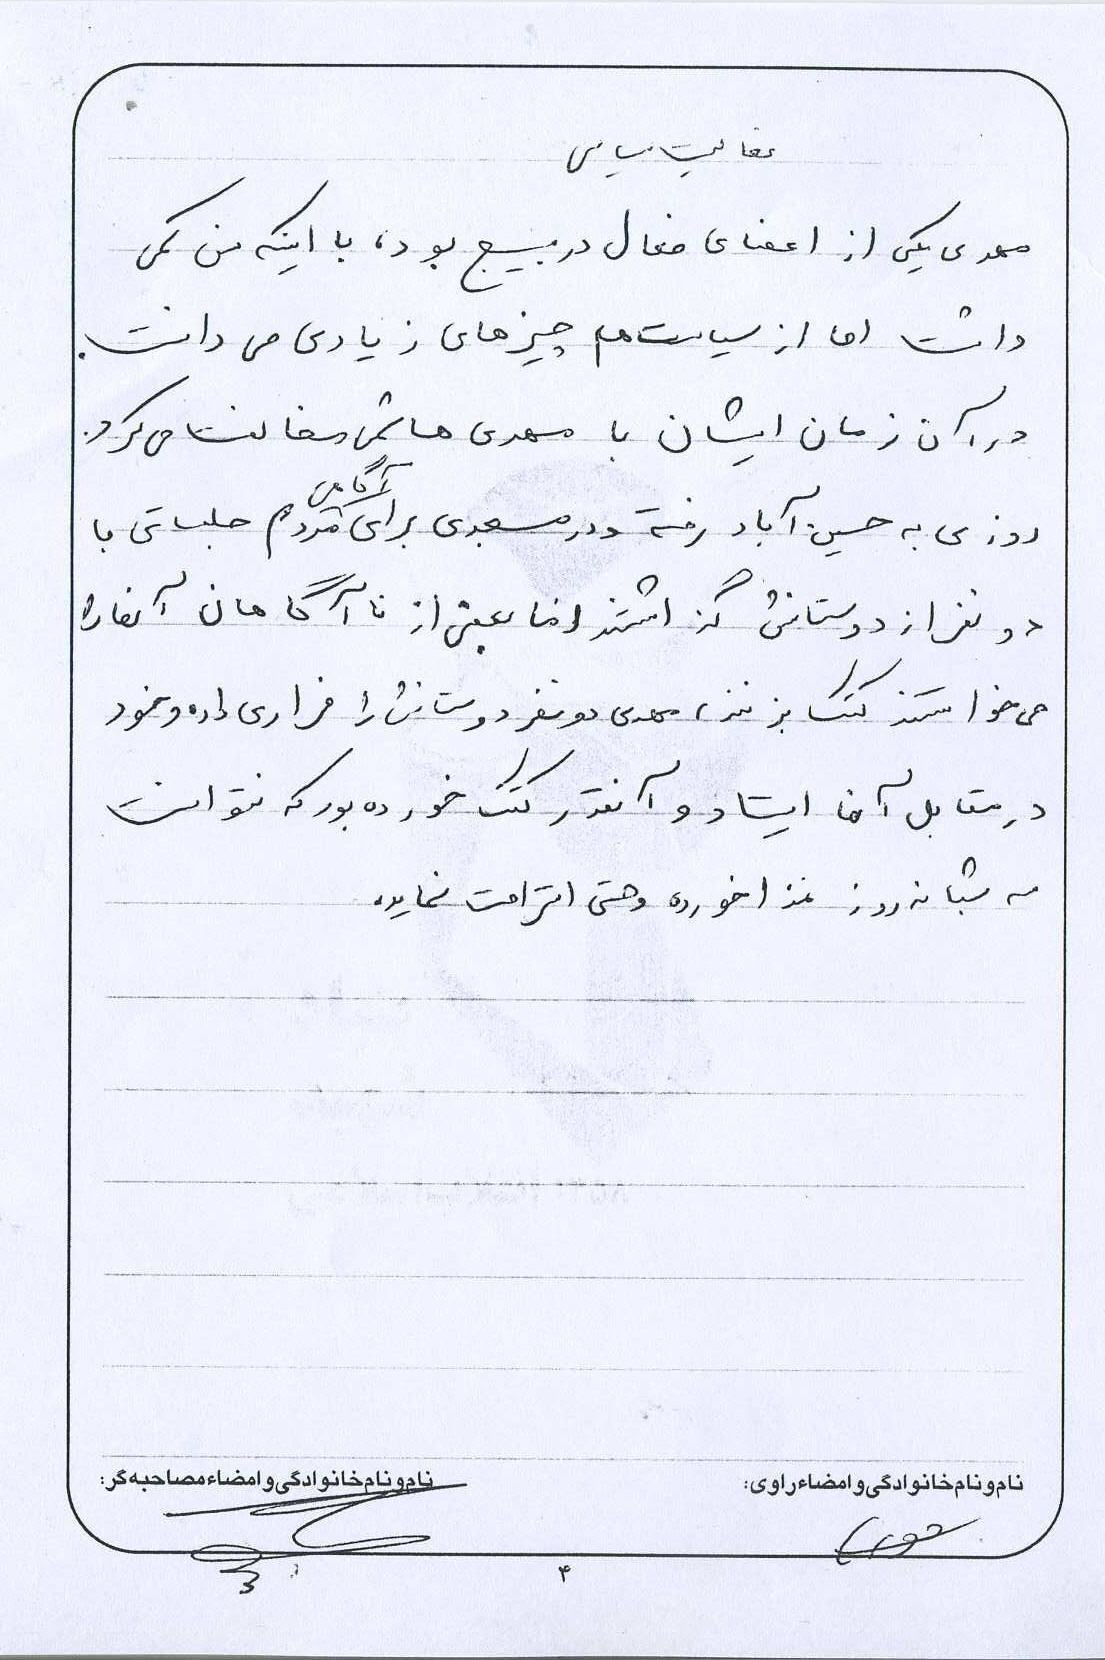 فعالیت سیاسی
مهدی یکی از اعضای فعال در بسیج بود، با اینکه سن کمی
داشت اما از سیاست هم چیزهای زیادی می دانست.
در آن زمان ایشان با مهدی هاشمی مخالفت می کرد.
روزی به حسین آباد رفته و در مسجدی برای آگاهی مردم جلساتی با
دو نفر از دوستانش گذاشتند اما بعضی از ناآگاهان آنها را
می خواستند کتک بزنند، مهدی دو نفر دوستانش را فراری داده و خود
در مقابل آنها ایستاد و آنقدر کتک خورده بود که نتوانست
سه شبانه روز غذا خورده و حتی استراحت نماید.
نام و نام خانوادگی و امضاء راوی:
نام و نام خانوادگی و امضاء مصاحبه گر:
۴